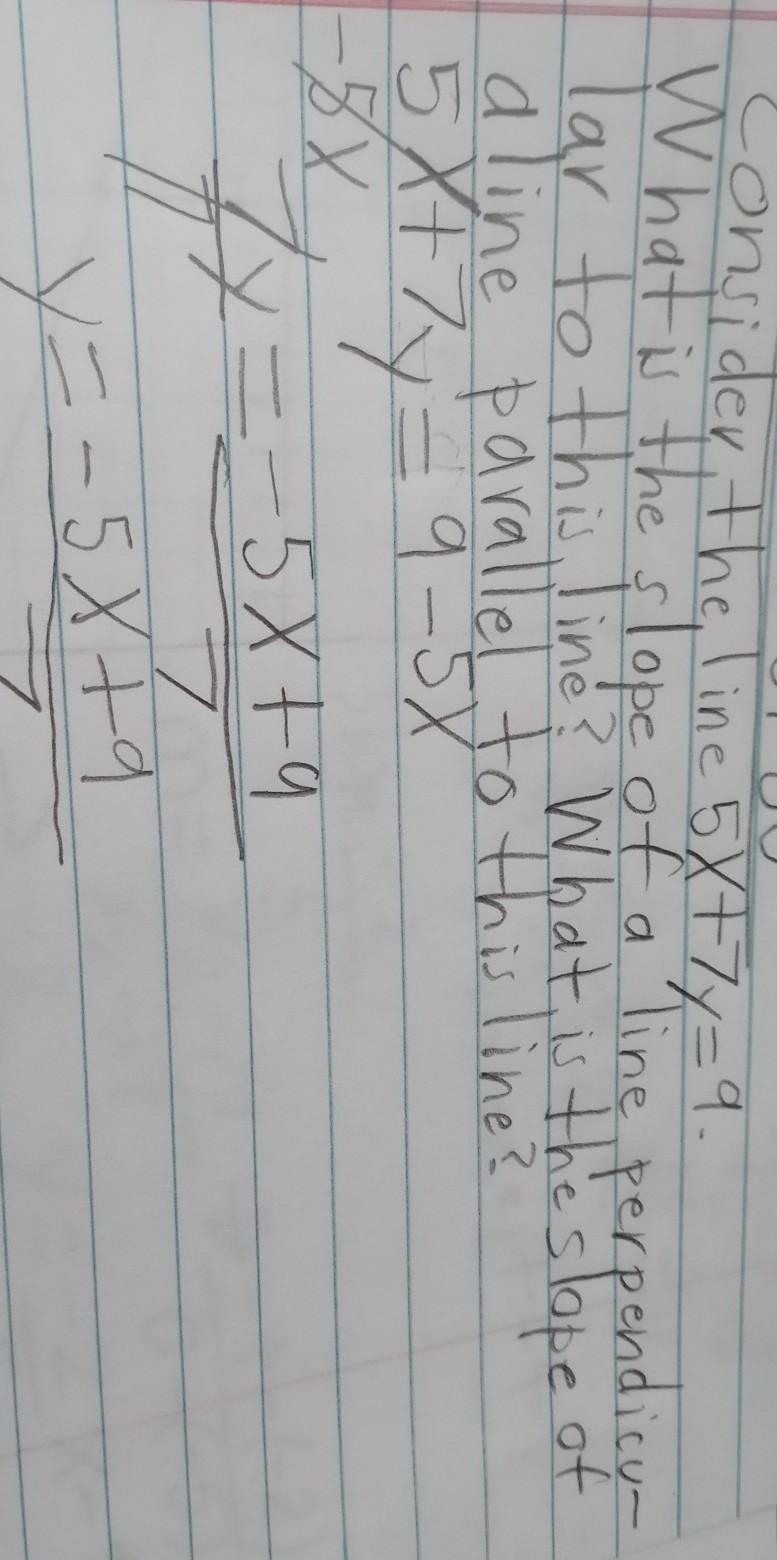 Consider the line 5x+7y=9.
What is the slope of a line perpendicu-
lar to this line? What is the slope of
a line parallel to this line?
5x+7y=9-5x
-5x
7y=-5x+9
7
7
y=-5x+9
7